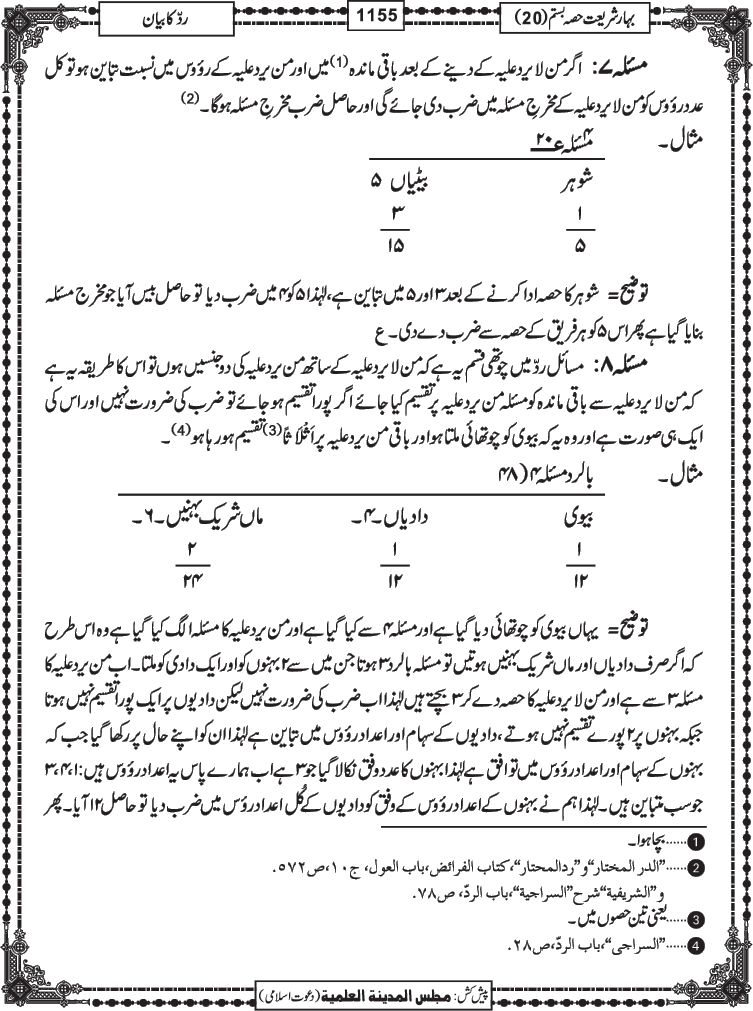 بہار شریعت حصہ بستم (20)
1155
ردّ کا بیان
مسئلہ ۷: اگر من لا یرد علیہ کے دینے کے بعد باقی ماندہ (1) میں اور من یرد علیہ کے رؤوس میں نسبت تباین ہو تو کل
عدد رؤوس کو من لا یرد علیہ کے مخرجِ مسئلہ میں ضرب دی جائے گی اور حاصل ضرب مخرجِ مسئلہ ہوگا۔ (2)
مثال۔ مسئلہ ۴ ء ۲۰
شوہر بیٹیاں ۵
۱ ۳
۵ ۱۵
توضیح= شوہر کا حصہ ادا کرنے کے بعد ۳ اور ۵ میں تباین ہے، لہٰذا ۵ کو ۴ میں ضرب دیا تو حاصل بیس آیا جو مخرجِ مسئلہ
بنایا گیا ہے پھر اس ۵ کو ہر فریق کے حصہ سے ضرب دے دی۔ ع
مسئلہ ۸: مسائل ردّ میں چوتھی قسم یہ ہے کہ من لا یرد علیہ کے ساتھ من یرد علیہ کی دو جنسیں ہوں تو اس کا طریقہ یہ ہے
کہ من لا یرد علیہ سے باقی ماندہ کو مسئلہ من یرد علیہ پر تقسیم کیا جائے اگر پورا تقسیم ہو جائے تو ضرب کی ضرورت نہیں اور اس کی
ایک ہی صورت ہے اور وہ یہ کہ بیوی کو چوتھائی ملتا ہو اور باقی من یرد علیہ پر اَثْلَاثًا (3) تقسیم ہو رہا ہو (4)۔
مثال۔ بالرد مسئلہ ۴ ( ۴۸
بیوی دادیاں۔ ۴۔ ماں شریک بہنیں۔ ۶۔
۱ ۱ ۲
۱۲ ۱۲ ۲۴
توضیح= یہاں بیوی کو چوتھائی دیا گیا ہے اور مسئلہ ۴ سے کیا گیا ہے اور من یرد علیہ کا مسئلہ الگ کیا گیا ہے وہ اس طرح
کہ اگر صرف دادیاں اور ماں شریک بہنیں ہوتیں تو مسئلہ بالرد ۳ ہوتا جن میں سے ۲ بہنوں کو اور ایک دادی کو ملتا۔ اب من یرد علیہ کا
مسئلہ ۳ سے ہے اور من لا یرد علیہ کا حصہ دے کر ۳ بچتے ہیں لہٰذا اب ضرب کی ضرورت نہیں لیکن دادیوں پر ایک پورا تقسیم نہیں ہوتا
جبکہ بہنوں پر ۲ پورے تقسیم نہیں ہوتے، دادیوں کے سہام اور اعداد رؤوس میں تباین ہے لہٰذا ان کو اپنے حال پر رکھا گیا جب کہ
بہنوں کے سہام اور اعداد رؤوس میں توافق ہے لہٰذا بہنوں کا عدد وفق نکالا گیا جو ۳ ہے اب ہمارے پاس یہ اعداد رؤوس ہیں: ۱، ۴، ۳
جو سب متباین ہیں۔ لہٰذا ہم نے بہنوں کے اعداد رؤوس کے وفق کو دادیوں کے کُل اعداد رؤس میں ضرب دیا تو حاصل ۱۲ آیا۔ پھر
1 ......بچا ہوا۔
2 ......"الدر المختار" و "ردالمحتار"، کتاب الفرائض، باب العول، ج ۱۰، ص ۵۷۲.
و "الشریفیة" شرح "السراجیة"، باب الردّ، ص ۷۸.
3 ......یعنی تین حصوں میں۔
4 ......"السراجی"، باب الردّ، ص ۲۸.
پیش کش: مجلس المدینة العلمیة (دعوت اسلامی)